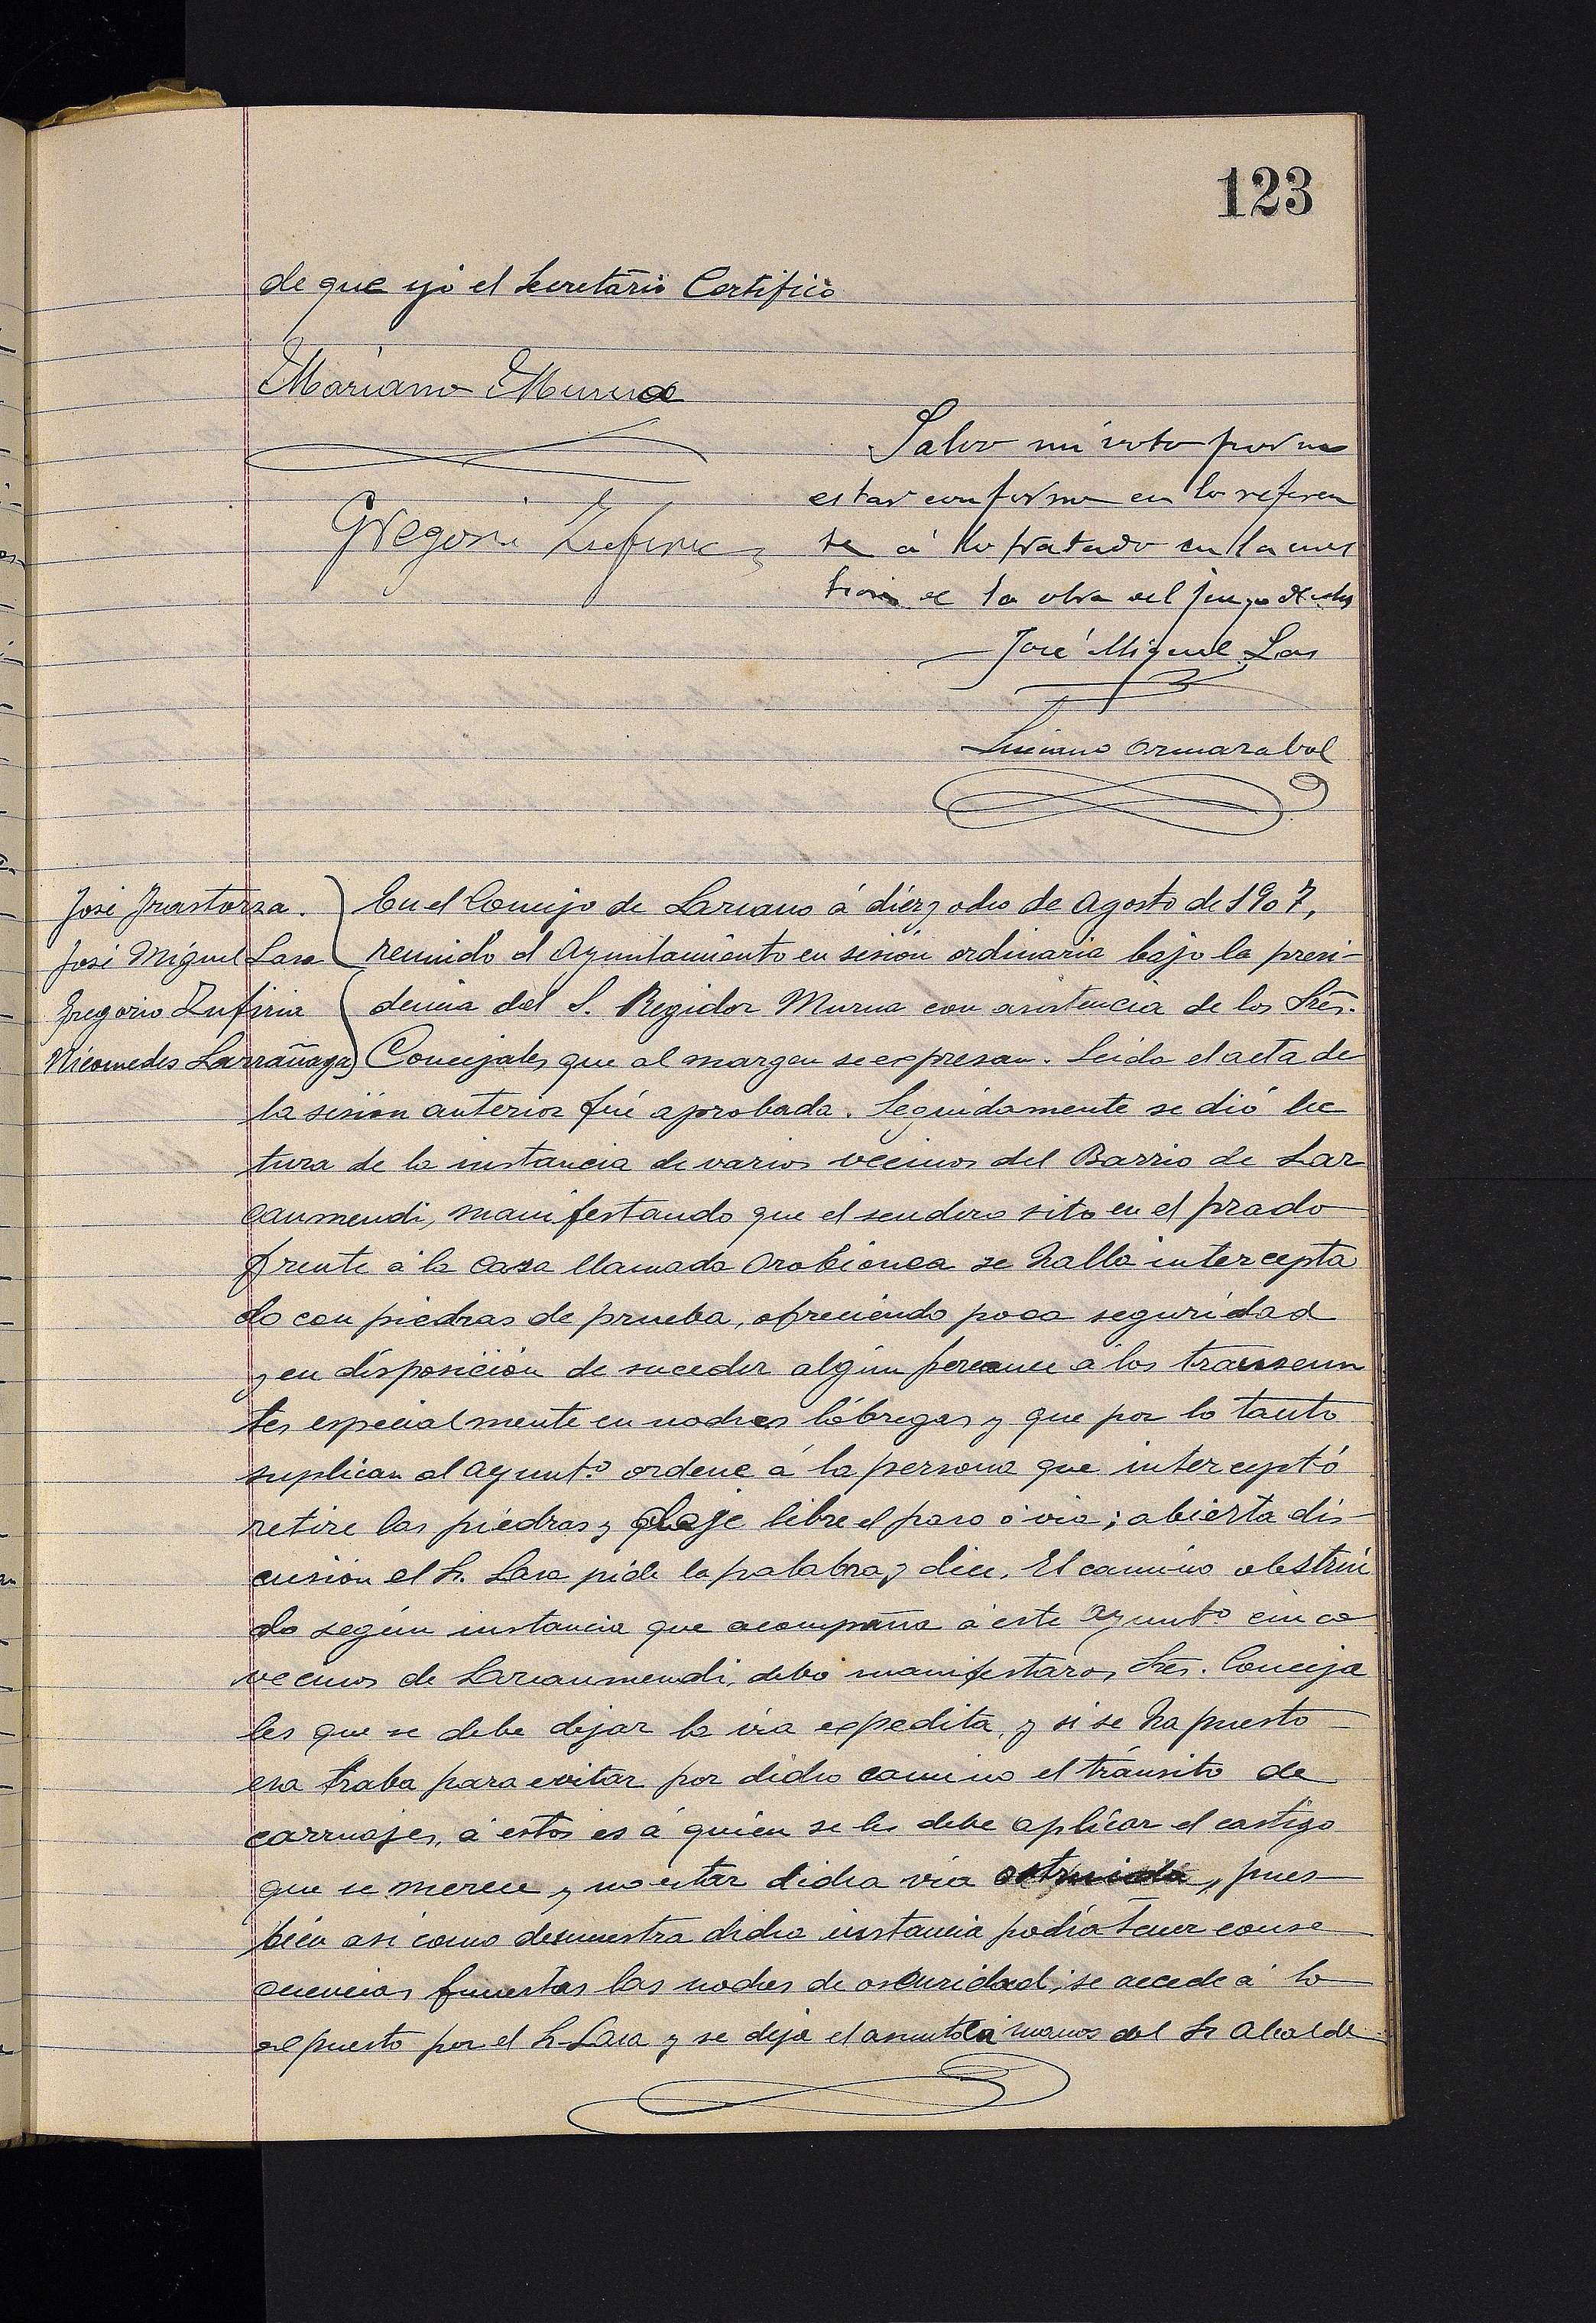 123
de que yó el Secretário Certifico
Mariano Murua
Salvo mi voto por no
estar conforme en lo referen
te á lo tratado en la cues
tion de la obra del juego de
José Miguel Lasa
Gregorio Zufiria
Luciano Ormazabal
José Irastorza.
José Miguel Lasa
Gregorio Zufiria
Nicomedes Larrañaga
En el Concejo de Larcano á diéz y ocho de Agosto de 1907,
reunido el Ayuntamiento en sesión ordinaria bajo la presi-
dencia del S. Regidor Murua con asistencia de los Srés.
Concejales que al margen se expresan. Leida el acta de
la sesión anterior fué aprobada. Seguidamente se dió lec
tura de la instancia de varios vecinos del Barrio de Lar
caumendi, manifestando que el sendero sito en el prado
frente á la casa llamada Orokionea se halla intercepta
do con piedras de prueba, ofreciendo poca seguridad
y en disposición de suceder algún percance á los transeun
tes especialmente en noches lóbregas y que por lo tanto
suplican al Ayunt.º ordene á la persona que interceptó
retire las piédras y deje libre el paso ó via; abierta dis-
cusión el Sr. Lasa pide la palabra y dice, El camino obstrui
do según instancia que acompaña á este Ayunt.º cinco
vecinos de Larcaumendi, debo manifestaros, Srés. Conceja
les que se debe dejar la via expedita, y si se ha puesto
esa traba para evitar por dicho camino el tránsito de
carruajes, á estos es á quién se les debe aplicar el castigo
que se merece y no estar dicha via ostruida, pues
bién asi como demuestra dicha instancia podía tener conse
cuencias funestas las noches de oscuridad; se accede á lo
expuesto por el Sr Lasa y se deja el asunto á manos del Sr Alcalde